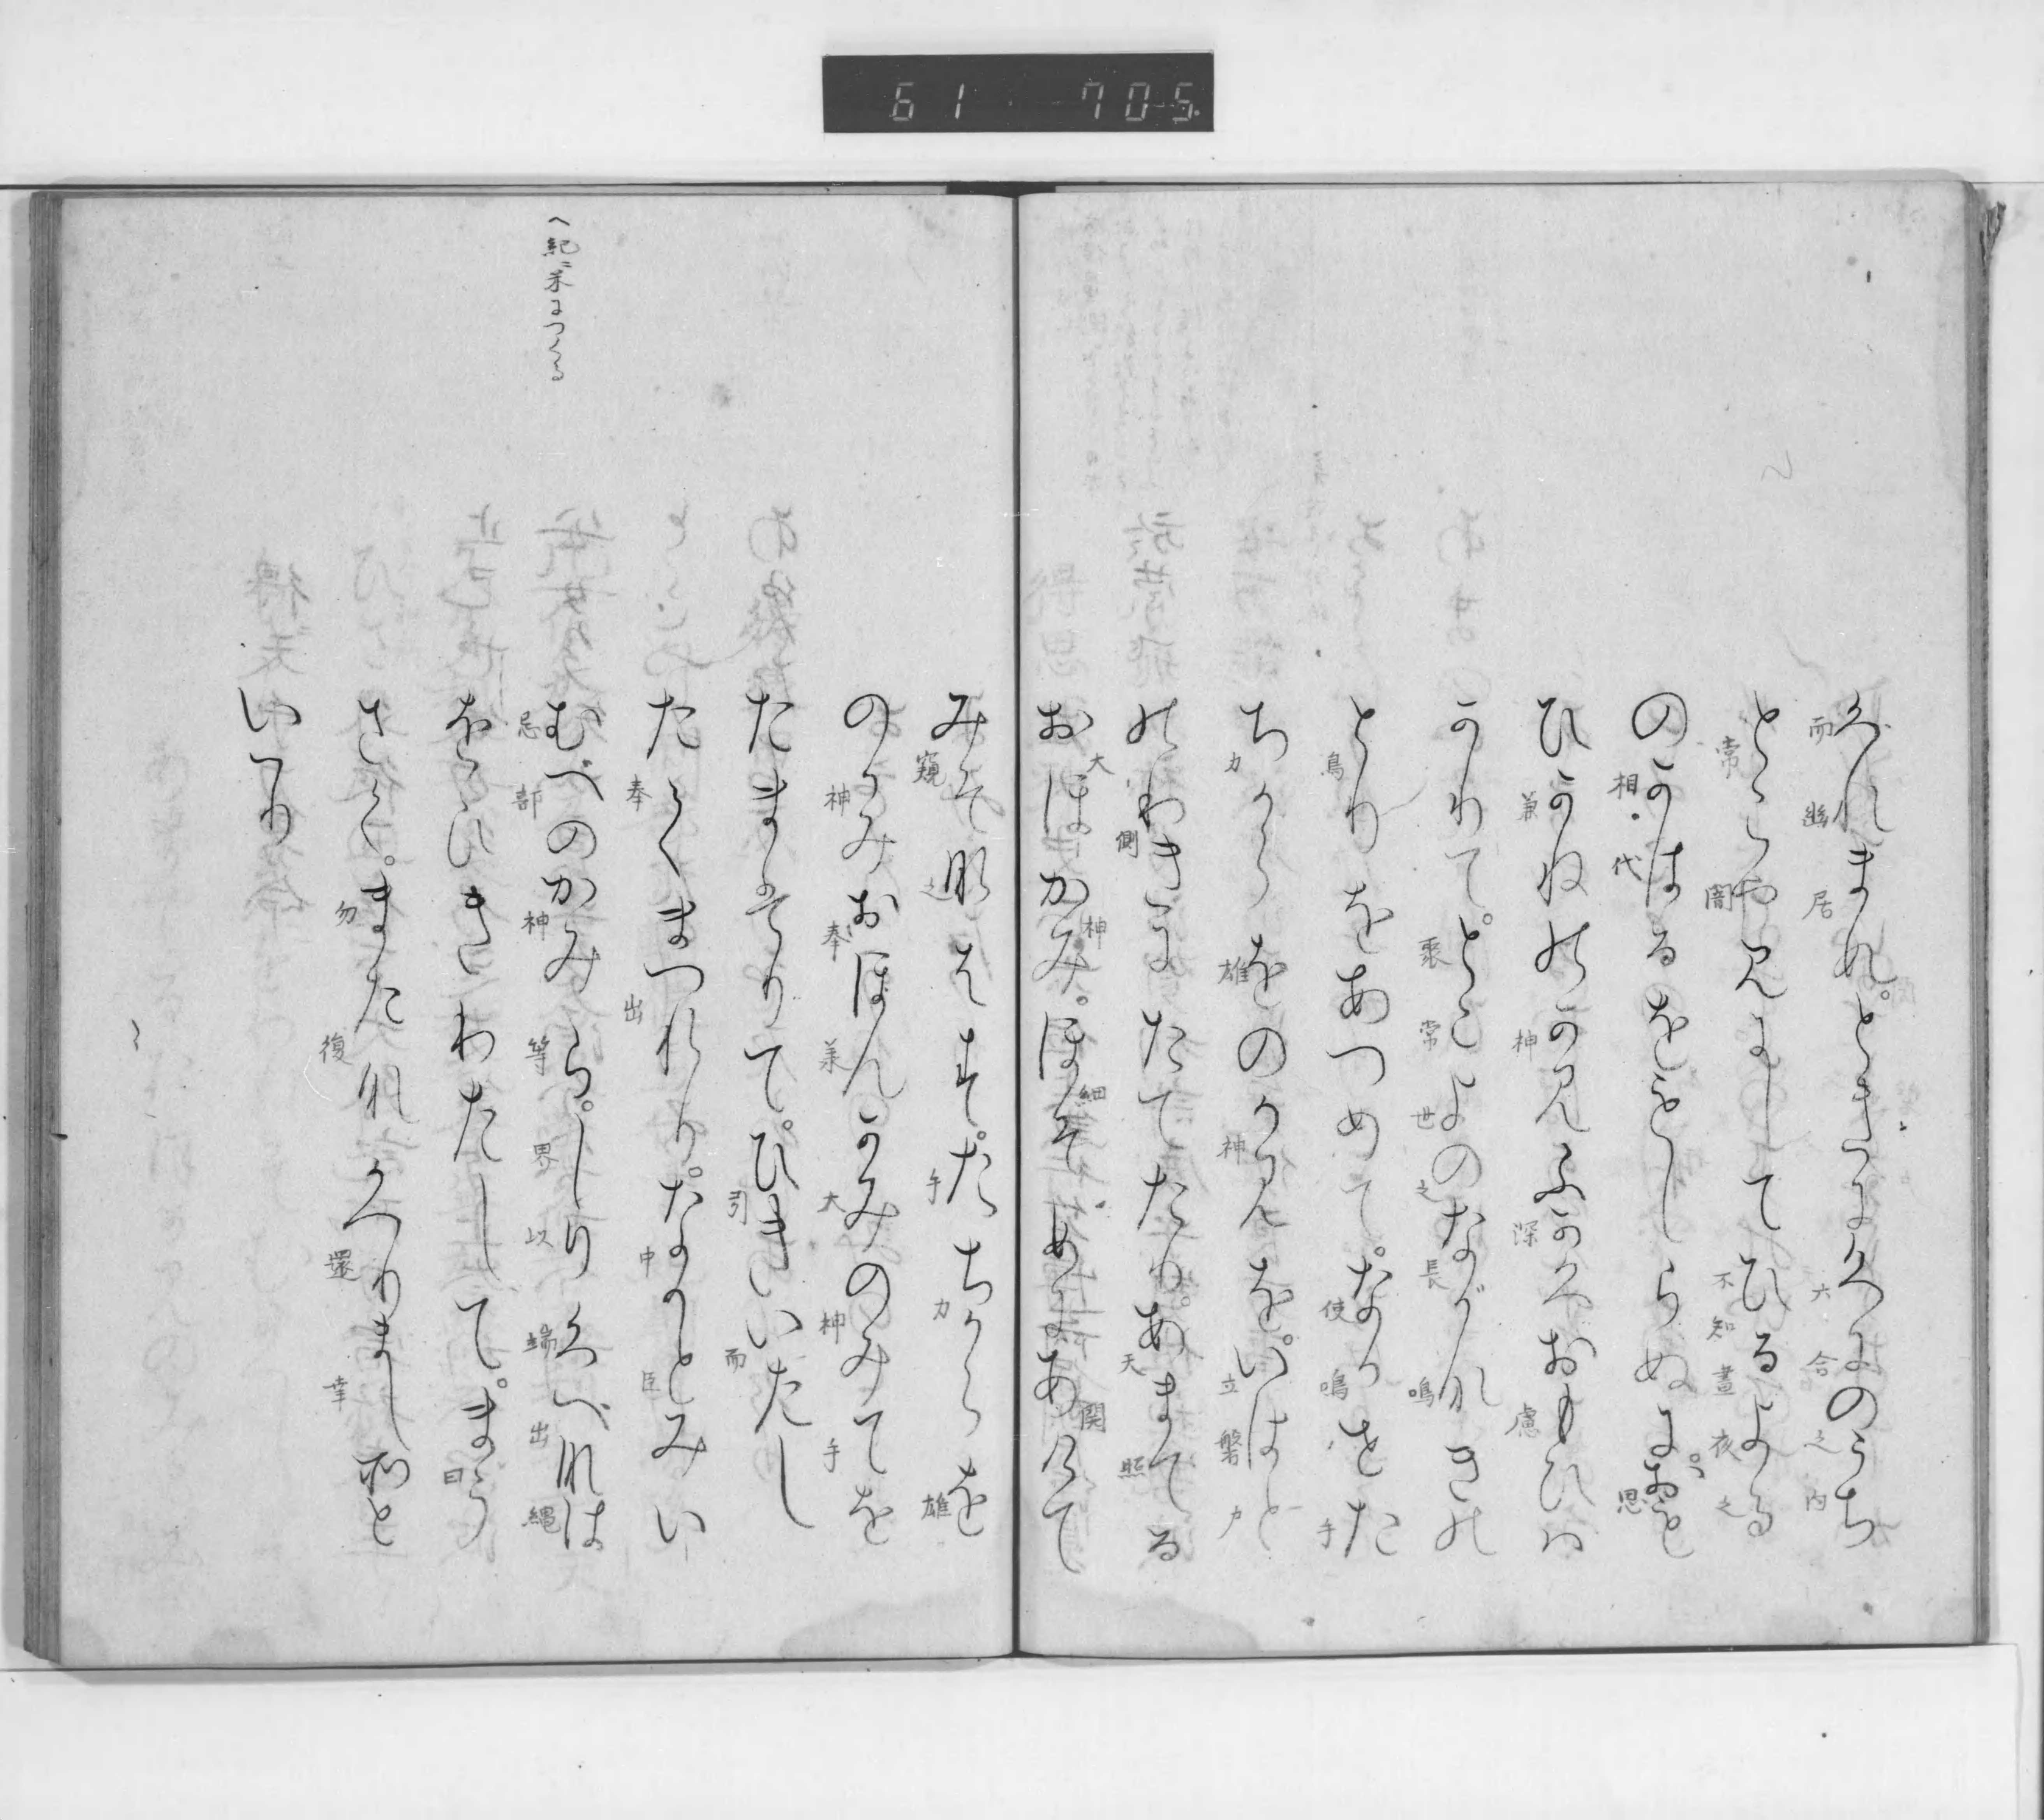 ぐれましぬ。ときにくにのうち
而 幽 居 六 合 之 内
とこやみにしてひるよる
常 闇 不 知 晝 夜 之
のかはるをもしらぬに。おも
相 代 思
ひかねのかみふかくおもひは
兼 神 深 慮
かりて。とこよのながなきの
聚 常 世 之 長 鳴
とりをあつめて。なかせた
鳥 使 鳴 手
ちからをのかみを。いはと
力 雄 神 立 磐 戸
のわきにたてたり。あまてる
側 天 照
おほかみ。ほそめにあけて
大 神 細 開
みそなはす。たちからを
窺 之 手 力 雄
のかみおほんかみのみてを
神 奉 大 神 手
たまはりて。ひきいたし
引 而
たてまつれり。なかとみい
奉 出 中 臣
へ紀ニ につくる
むべのかみら。しりくべなは
忌 部 神 等 界 以 端 出 縄
をひきわたして。まう
曰
さく。またなかへりましそと
勿 復 還 幸
いへり